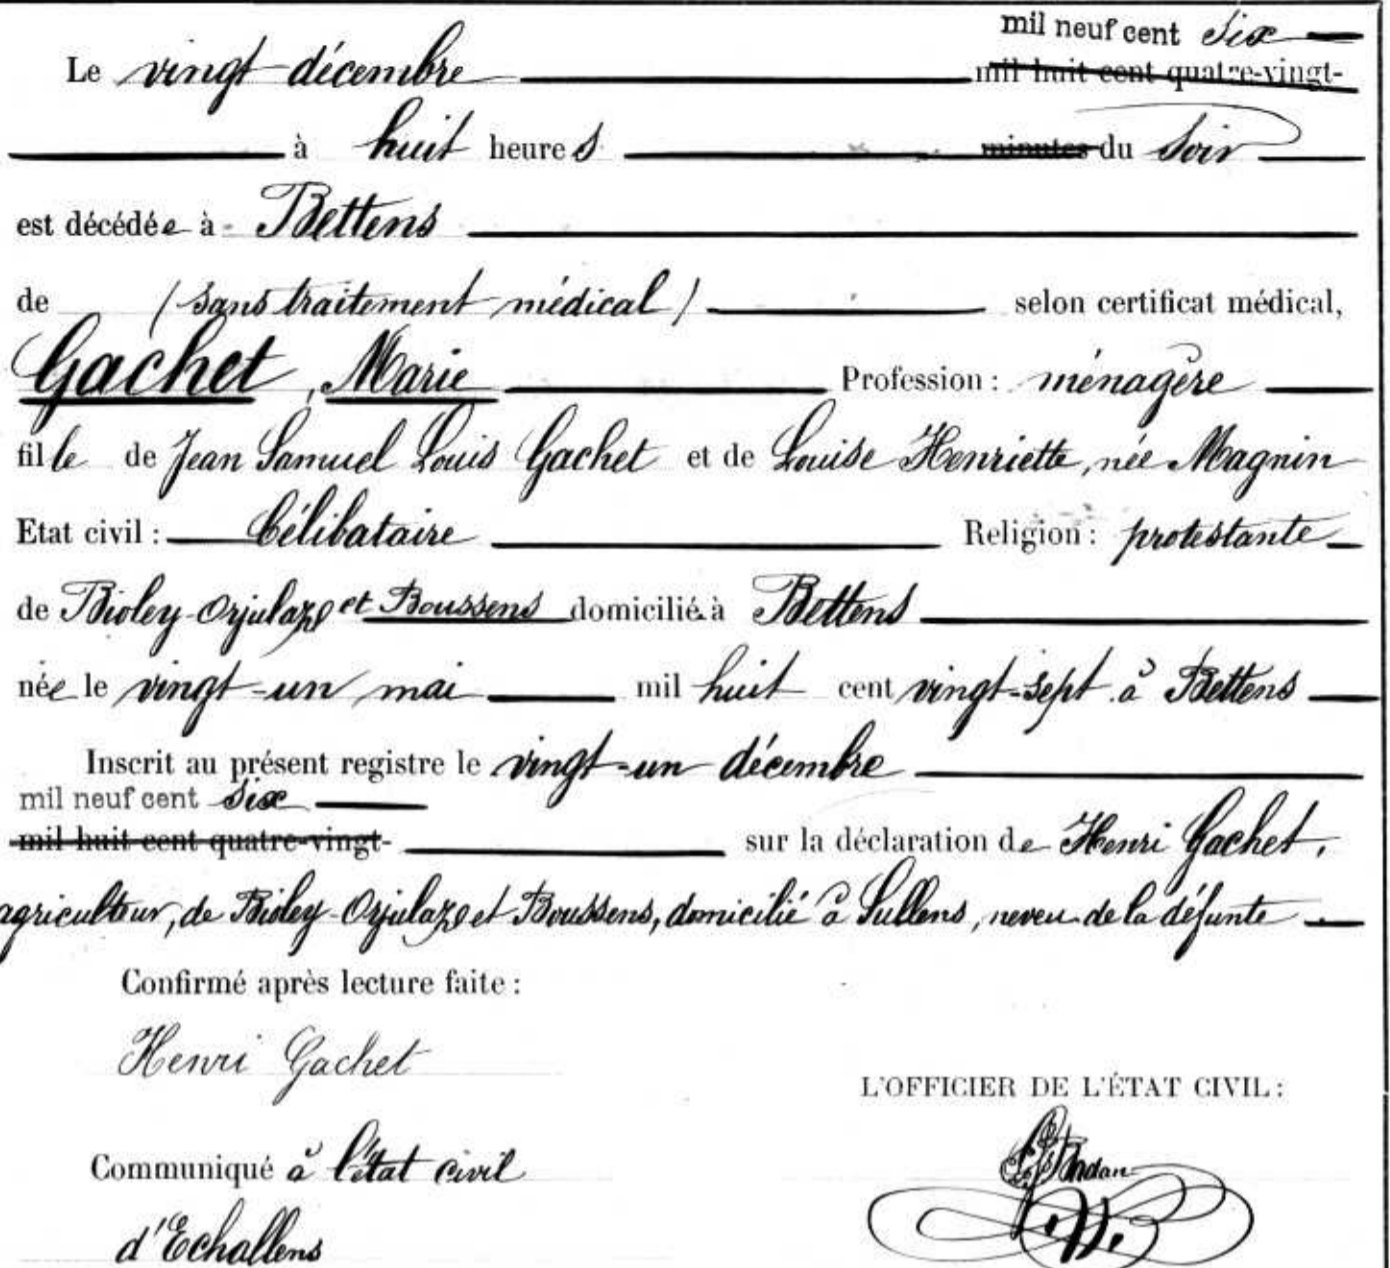 mil neuf cent six
Le vingt décembre mil huit cent quatre-vingt-
à huit heures minutes du soir
est décédée à Bettens
de (sans traitement médical) selon certificat médical,
Gachet, Marie Profession : ménagère
fille de Jean Samuel Louis Gachet et de Louise Henriette, née Magnin
Etat civil : Célibataire Religion : protestante
de Bioley-Orjulaz et Boussens domicilié à Bettens
née le vingt-un mai mil huit cent vingt-sept à Bettens
Inscrit au présent registre le vingt-un décembre
mil neuf cent six
mil huit cent quatre-vingt- sur la déclaration de Henri Gachet,
agriculteur, de Bioley-Orjulaz et Boussens, domicilié à Sullens, neveu de la défunte.
Confirmé après lecture faite :
Henri Gachet
L'OFFICIER DE L'ÉTAT CIVIL :
Communiqué à l'état civil
d'Echallens